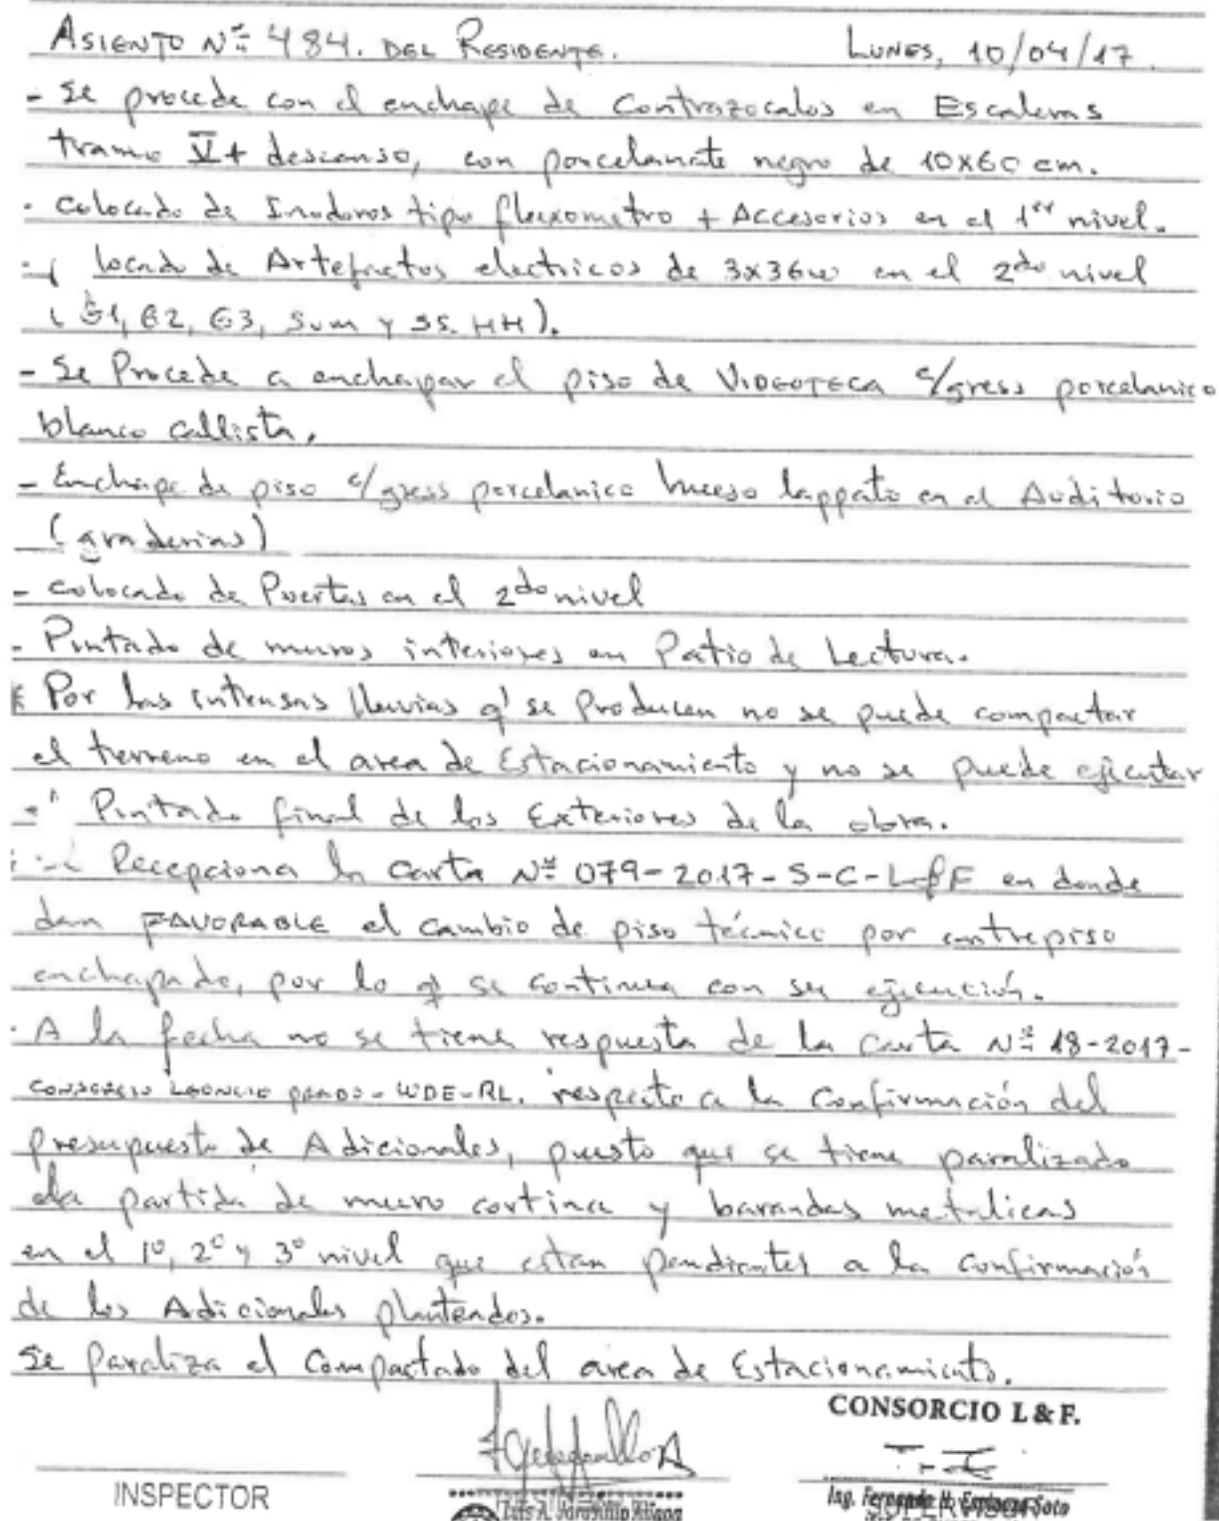 ASIENTO Nº 484. DEL RESIDENTE. LUNES, 10/04/17.
- Se procede con el enchape de Contrazocalos en Escaleras
tramo V + descanso, con porcelanate negro de 10x60 cm.
- colocado de Inodoros tipo fluxometro + Accesorios en el 1er nivel.
- locado de Artefactos electricos de 3x36w en el 2do nivel
(G1, G2, G3, Sum y SS.HH).
- Se Procede a enchapar el piso de VIDEOTECA c/gress porcelanico
blanco callista,
- Enchape de piso c/gress porcelanico hueso lappato en el Auditorio
(graderias)
- colocado de Puertas en el 2do nivel
- Pintado de muros interiores en Patio de Lectura.
Por las intensas lluvias q' se Producen no se puede compactar
el terreno en el area de Estacionamiento y no se puede ejecutar
Pintado final de los Exteriores de la obra.
Recepciona la Carta Nº 079-2017-S-C-L&F en donde
dan FAVORABLE el cambio de piso técnico por contrapiso
enchapado, por lo q' se continua con su ejecución.
- A la fecha no se tiene respuesta de la Carta Nº 18-2017-
CONSORCIO LEONCIO PRADO-WDE-RL. respecto a la Confirmación del
presupuesto de Adicionales, puesto que se tiene paralizado
la partida de muro cortina y barandas metalicas
en el 1º, 2º y 3º nivel que estan pendientes a la confirmación
de los Adicionales planteados.
Se Paraliza el Compactado del area de Estacionamiento.
CONSORCIO L & F.
INSPECTOR
Luis A.
Ing. Fernando Soto
SUPERVISOR